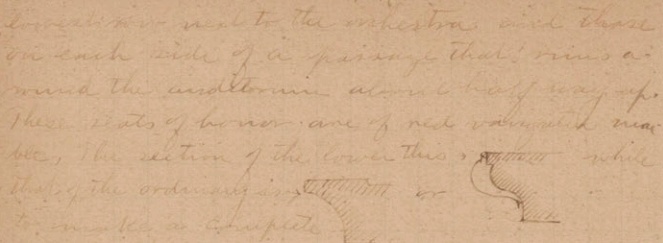 lowest row next to the orchestra and those
on each side of a passage that runs a-
round the auditorium about half way up.
These seats of honor are of red variegated mar
ble, The section of the lower
this, while
that of the ordinary is or
to make a complete